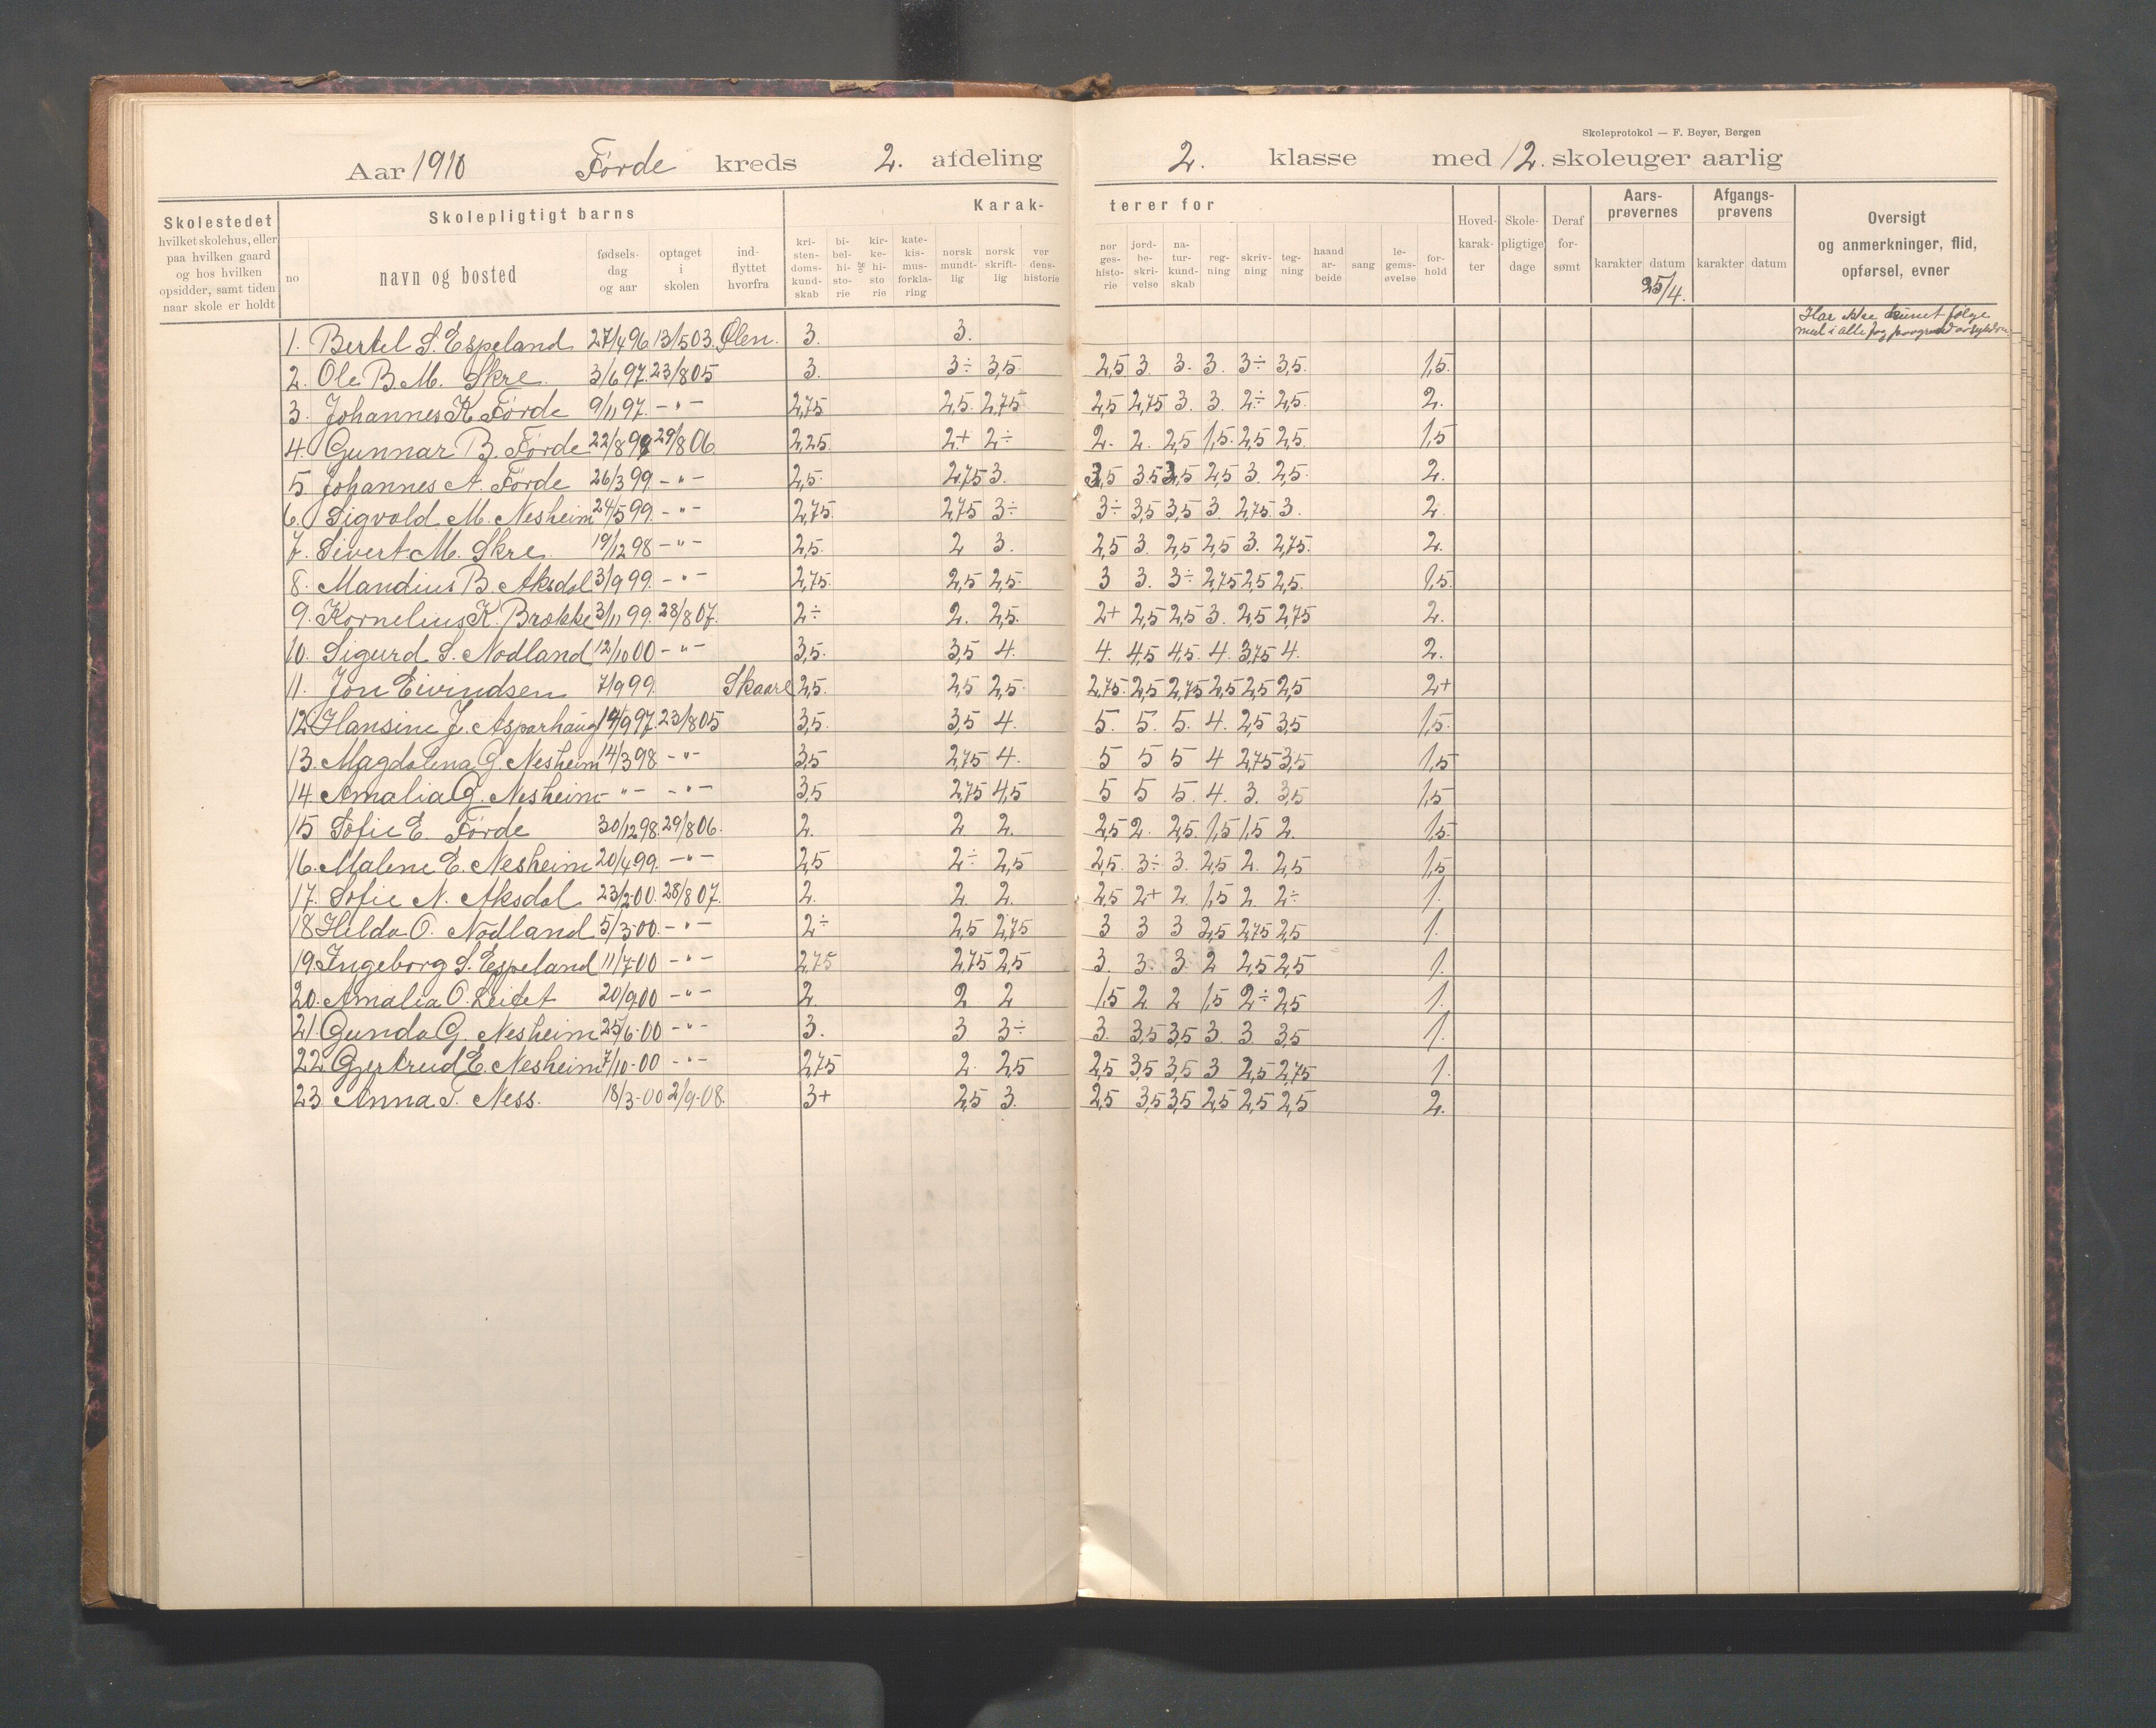 Skoleprotokol — F. Beyer, Bergen
Aar 1910 Förde kreds 2. afdeling 2. klasse med 12. skoleuger aarlig
Skolestedet
hvilket skolehus, eller
paa hvilken gaard
og hos hvilken
opsidder, samt tiden
naar skole er holdt
Skolepligtigt barns
no
navn og bosted
fødsels-
dag
og aar
optaget
i
skolen
ind-
flyttet
hvorfra
Karak-
terer for
kri-
sten-
doms-
kund-
skab
bi-
bel-
hi-
sto-
rie
og
kir-
ke-
hi-
sto
rie
kate-
kis-
mus-
forkla-
ring
norsk
mundt-
lig
norsk
skrift-
lig
ver
dens-
historie
nor
ges-
histo-
rie
jord-
be-
skri-
velse
na-
tur-
kund-
skab
reg-
ning
skriv-
ning
teg-
ning
haand
ar-
beide
sang
le-
gems-
øvelse
for-
hold
Hoved-
karak-
ter
Skole-
pligtige
dage
Deraf
for-
sømt
Aars-
prøvernes
karakter datum
25/4.
Afgangs-
prøvens
karakter datum
Oversigt
og anmerkninger, flid,
opførsel, evner
1. Bertel S. Espeland 27/4 96 13/5 03. Ølen. 3. 3. Har ikke kunet følge
med i alle fag
2. Ole B. M. Skre 3/6 97. 23/8 05 3. 3÷ 3,5. 2,5 3. 3. 3. 3÷ 3,5. 1,5.
3. Johannes K. Förde 9/11 97. -"- 2,75 2,5. 2,75 2,5 2,75 3. 3. 2÷ 2,5. 2.
4. Gunnar B. Förde 22/8 98 29/8 06. 2,25. 2+ 2÷ 2. 2. 2,5 1,5. 2,5 2,5. 1,5
5 Johannes A. Förde 26/3 99 -"- 2,5. 2,75 3. 3,5 3,5 3,5 2,5 3. 2,5. 2.
6. Sigvald M. Nesheim 24/5 99. -"- 2,75. 2,75 3÷ 3÷ 3,5 3,5 3. 2,75. 3. 2.
7. Sivert M. Skre 19/12 98 -"- 2,5. 2 3. 2,5 3. 2,5 2,5 3. 2,75. 2.
8. Mandius B. Aksdal 3/9 99. -"- 2,75. 2,5 2,5. 3 3. 3÷ 2,75 2,5 2,5. 1,5.
9. Kornelius K. Brokke 3/11 99. 28/8 07. 2÷ 2. 2,5. 2+ 2,5 2,5 3. 2,5 2,75 2.
10. Sigurd S. Nodland 12/10 00 -"- 3,5. 3,5 4. 4. 4,5 4,5. 4. 3,75 4. 2.
11. Jon Eivindsen 7/9 99. Skaare 2,5. 2,5 2,5. 2,75. 2,5 2,75 2,5 2,5 2,5 2+
12. Hansine J. Asparhaug 14/9 97. 23/8 05 3,5. 3,5 4. 5. 5. 5. 4. 2,5 3,5 1,5.
13. Magdalena G. Nesheim 14/3 98 -"- 3,5 2,75 4. 5 5 5 4 2,75 3,5 1,5
14. Amalia G. Nesheim -"- -"- 3,5 2,75 4,5 5 5 5. 4. 3. 3,5 1,5
15 Sofie E. Förde 30/12 98. 29/8 06. 2. 2 2. 2,5 2. 2,5. 1,5 1,5 2. 1,5.
16. Malene E. Nesheim 20/4 99. -"- 2,5 2÷ 2,5 2,5. 3÷ 3. 2,5 2. 2,5 1,5
17. Sofie N. Aksdal 23/2 00. 28/8 07. 2. 2. 2. 2,5 2+ 2. 1,5 2. 2÷ 1.
18 Hilda O. Nodland 5/3-00. -"- 2÷ 2,5 2,75 3 3 3 2,5 2,75 2,5 1.
19. Ingeborg S. Espeland 11/7-00 -"- 2,75 2,75 2,5 3. 3. 3. 2 2,5 2,5 1.
20. Amalia O. Leitet 20/9 00 -"- 2. 2 2 1,5 2 2 1,5 2÷ 2,5 1.
21. Gunda G. Nesheim 25/6-00 -"- 3. 3 3÷ 3. 3,5 3,5 3 3 3,5 1.
22 Gjertrud E. Nesheim 7/10-00 -"- 2,75 2. 2,5 2,5 3,5 3,5 3 2,5 2,75 1.
23 Anna T. Ness. 18/3-00 2/9-08. 3+ 2,5 3. 2,5 3,5 3,5 2,5 2,5 2,5 2.